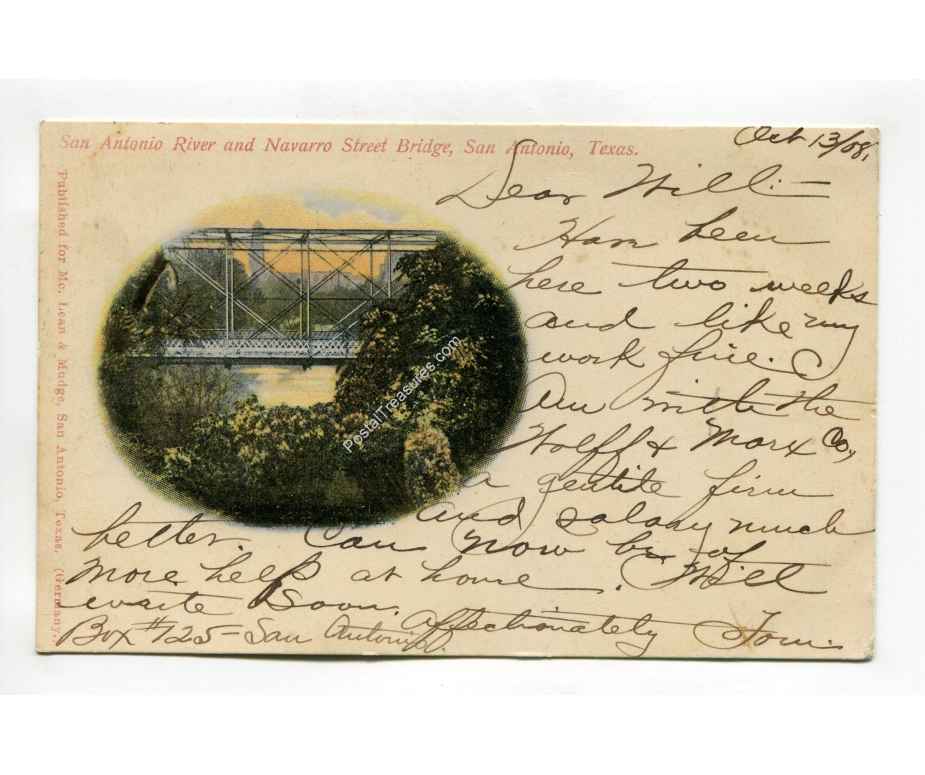 San Antonio River and Navarro Street Bridge, San Antonio, Texas.
Oct 13/08.
Published for Mc. Lean & Mudge, San Antonio, Texas. (Germany.)
Dear Will:—
Have been
here two weeks
and like my
work fine.
Am with the
Wolff & Marx Co,
a gentile firm
and salary much
better. Can now be of
more help at home. Will
write soon.
Affectionately Tom.
Box #725 - San Antonio
PostalTreasures.com